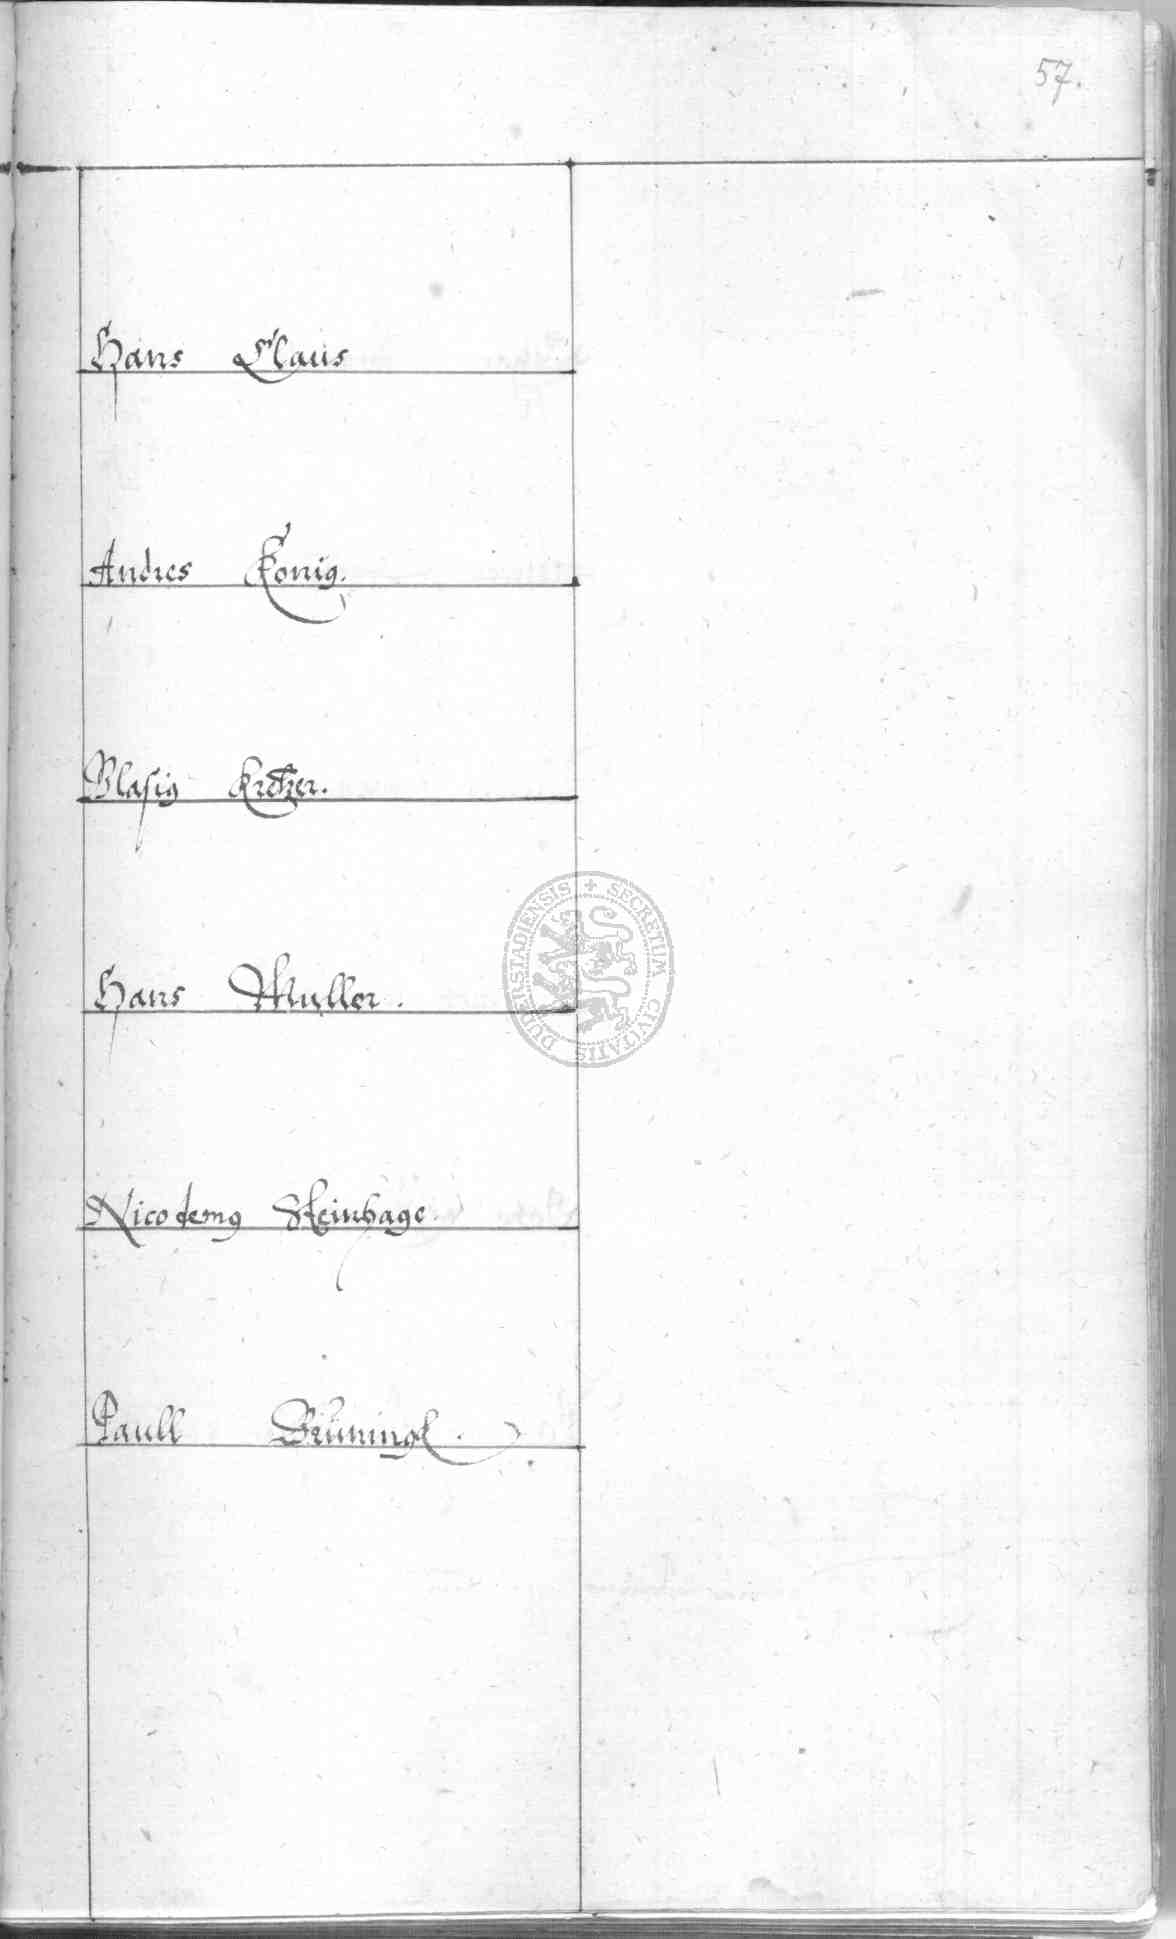 57.
Hans Claus
Andres König.
Blasig Kretzer.
Hans Müller.
Nicodemg Steinhage.
Paull
SECRETUM CIVITATIS DUDERSTADIENSIS